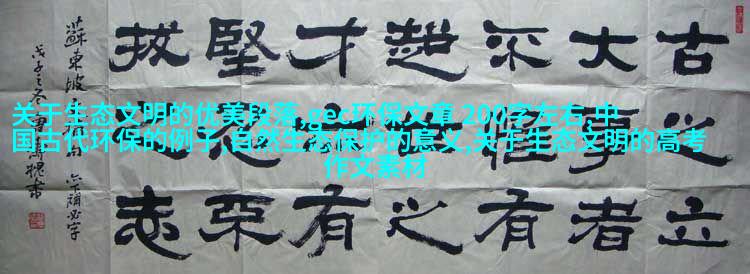 古之立
大事者
不惟有
超世之
才亦有
堅忍不
拔之志
蘇東坡
戊子之冬
关于生态文明的优美段落,gec环保文章 200字左右,中
国古代环保的例子,自然生态保护的意义,关于生态文明的高考
作文素材